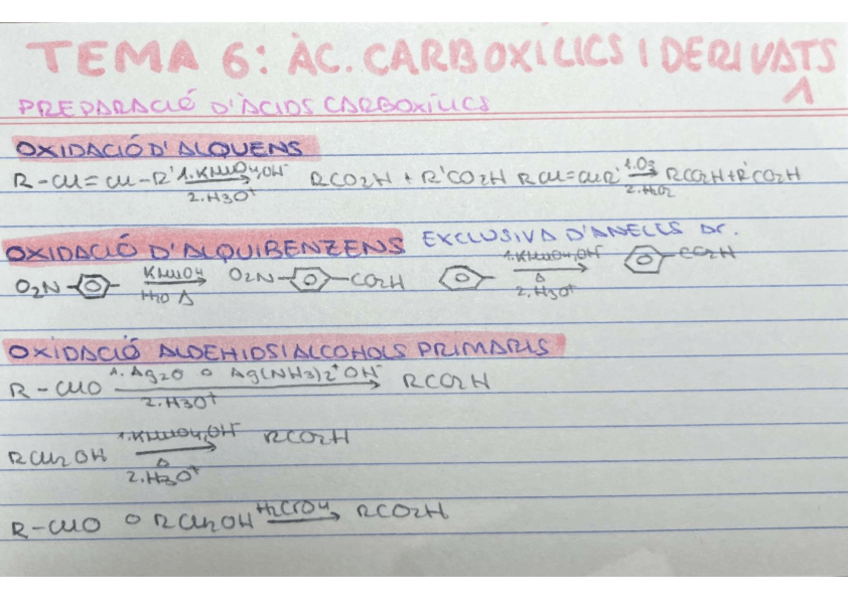 TEMA 6: ÀC. CARBOXÍLICS I DERIVATS
1
PREPARACIÓ D'ÀCIDS CARBOXÍLICS
OXIDACIÓ D'ALQUENS
R-CH=CH-R' 1. KMnO4, OH⁻ 2. H3O⁺ → RCO2H + R'CO2H RCH=CHR' 1. O3 2. H2O2 → RCO2H + R'CO2H
OXIDACIÓ D'ALQUIBENZENS EXCLUSIVA D'ANELLS AR.
O2N- KMnO4 H2O Δ → O2N- -CO2H 1. KMnO4, OH⁻ Δ 2. H3O⁺ → -CO2H
OXIDACIÓ ALDEHIDS I ALCOHOLS PRIMARIS
R-CHO 1. Ag2O o Ag(NH3)2⁺ OH⁻ 2. H3O⁺ → RCO2H
RCH2OH 1. KMnO4, OH⁻ Δ 2. H3O⁺ → RCO2H
R-CHO o RCH2OH H2CrO4 → RCO2H